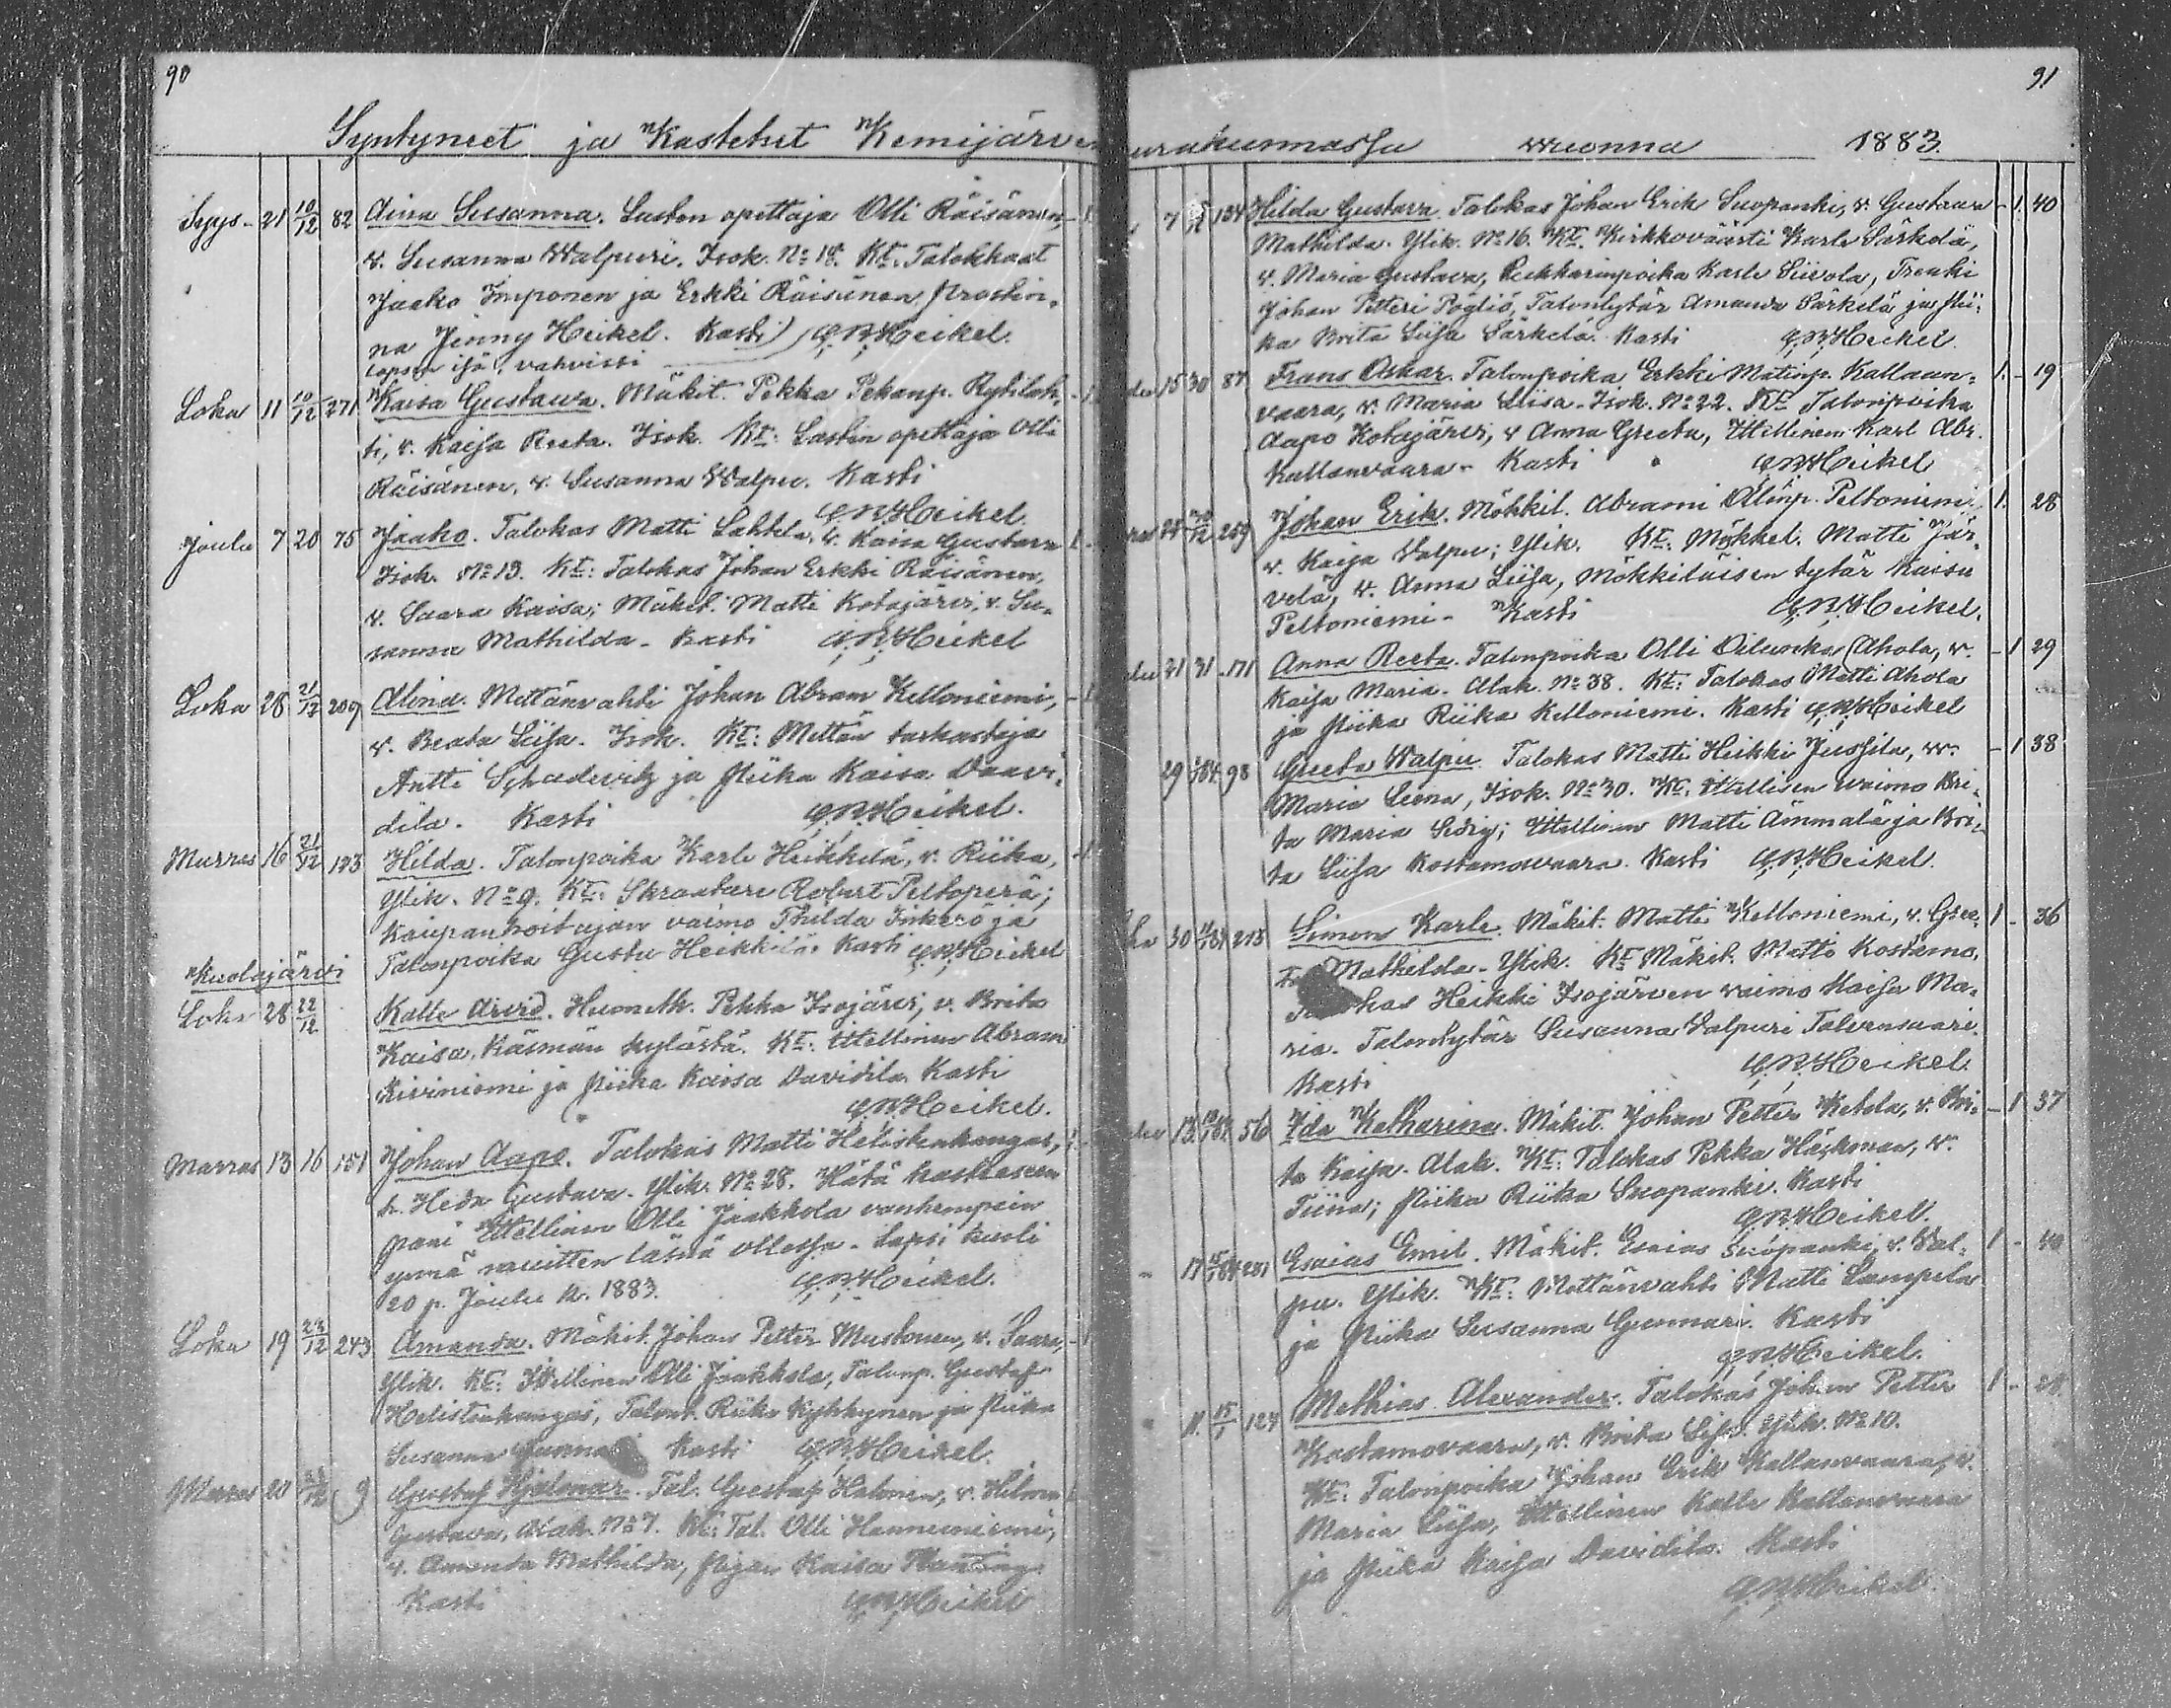 90
Syntyneet ja Kastetut Kemijärven
Syys- 21 10/12 82 Aina Susanna. Lasten opettaja Olli Räisänen, - 1.
v. Susanna Walpuri. Isok. No 18. Kt. Talokkaat
Jaako Imponen ja Erkki Räisänen,
na Jenny Heikel. Kasti Heikel.
lapsen isä, vahvisti
Loka 11 10/12 271 Kaisa Gustawa. Mäkit. Pekka Pekanp. - 1.
ti, v. Kaisa Reeta. Isok. Kt: Lasten opettaja Olli
Räisänen, v. Susanna Walpu. Kasti
Heikel.
Joulu 7 20 75 Jaako. Talokas Matti Lahtela, v. Kaisa Gustava 1.
Isok. No 13. Kt: Talokas Johan Erkki Räisänen,
v. Saara Kaisa; Mäkit. Matti Kotajärvi, v. Su-
sanna Mathilda - Kasti Heikel
Loka 28 21/12 209 Alina. Mettänvahti Johan Abram Kelloniemi, - 1
v. Beata Liisa. Isok. Kt: Mettän tarkastaja
Antti ja Piika Kaisa Daavi-
dila. Kasti Heikel.
Marras 16 21/12 123 Hilda. Talonpoika Karle Heikkelä, v. Riika, - 1.
Ylik. No 9. Kt: Skraatare Robert Peltoperä;
Kaupanhoitajan vaimo Thilda Inkerö ja
Talonpoika Gustu Heikkilä. Kasti Heikel
Kuolajärvi
Loka 28 22/12 Kalle Arvid. Huonem. Pekka Isojärvi, v. Brita
Kaisa, Käsmän kylästä. Kt: Ittellinen Abram
Kiviniemi ja Piika Kaisa Davidila. Kasti
Heikel.
Marras 13 16 151 Johan Aapo. Talokas Matti Heliskankangas, 1.
v. Heda Gustava. Ylik. No 28. Hätä kasteesen
pani Ittellinen Olli Jaakkola vanhempein
ynnä muitten läsnä ollessa. Lapsi kuoli
20 p. Joulu k. 1883. Heikel.
Loka 19 23/12 243 Amanda. Mäkit. Johan Petter Mustonen, v. Saara, - 1.
Ylik. Kt: Ittellinen Olli Jaakkola, Talonp. Gustaf
Helistenkangas, Talont. Riika Kykkynen ja Piika
Susanna Kasti Heikel.
Marras 20 9 Gustaf Hjalmar. Tal. Gustaf Halonen, v. Hilma
Gustava, Alak. No 7. Kt: Tal. Olli Hannuniemi,
v. Amanda Mathilda, Pigan Kaisa
Kasti Heikel
91
urakunnassa wuonna 1883.
7 124 Hilda Gustava. Talokas Johan Erik Suopanki, v. Gustaava - 1. 40
Mathilda. Ylik. No 16. Kt. Kirkkoväärti Karle Särkelä,
v. Maria Gustava, Karle Siivola, Trenki
Johan Petteri Pöyliö, Talontytär Amanda Särkelä ja Pii-
ka Brita Liisa Särkelä. Kasti Heikel.
15 30 87 Frans Oskar. Talonpoika Erkki Matinp. Kallaan- 1. - 19
vaara, v. Maria Liisa - Isok. No 22. Kt: Talonpoika
Aapo Kotajärvi, v Anna Greeta, Ittellinen Karl Abr.
Kallanvaara - Kasti Heikel
259 Johan Erik. Mökkil. Abrami Olinp. Peltoniemi, 1. 28
v. Kaisa Valpu; Ylik. Kt: Mökkel. Matti Jär-
velä, v. Anna Liisa, Mökkiläisen tytär Kaisa
Peltoniemi - Kasti Heikel.
21 31 171 Anna Reeta. Talonpoika Olli Oilunka (Ahola, v. - 1 29
Kaisa Maria. Alak. No 38. Kt: Talokas Matti Ahola
ja Piika Riika Kelloniemi. Kasti Heikel
29 98 Greeta Walpu. Talokas Matti Heikki Jussila, w. - 1 38
Maria Leena, Isok. No 30. Kt: Ittellisen waimo Bri-
ta Maria; Ittellinen Matti Ämmälä ja Bri-
ta Liisa Kostamovaara. Kasti Heikel.
30 Simon Karle. Mäkit. Matti Kelloniemi, v. Gree- 1 - 36
Mathilda - Ylik. Kt: Mäkit. Matti Kostamo,
Heikki Isojärven vaimo Kaisa Ma-
ria. Talontytär Susanna Valpuri Talvensaari.
Kasti Heikel.
13 56 Ida Katharina. Mäkit. Johan Petter Ketola, v. Bri- - 1 37
ta Kaisa. Alak. Kt: Talokas Pekka Häykman, v.
Tiina; Piika Riika Suopanki. Kasti
Heikel.
" 17 Esaias Emil. Mäkit. Esaias Suopanki, v. Wal- 1 - 40
pu. Ylik. Kt: Mettänvahti Matti Lampela
ja Piika Susanna Kasti
Heikel.
" 11. 15/1 127 Mathias Alexander. Talokas Johan Petter 1 - 28
Kostamovaara, v. Brita Liisa. Ylik. No 10.
Kt: Talonpoika Johan Erik Kallanvaara, v.
Maria Liisa, Ittellinen Kalle Kallanvaara
ja Piika Kaisa Davidila. Kasti
Heikel.